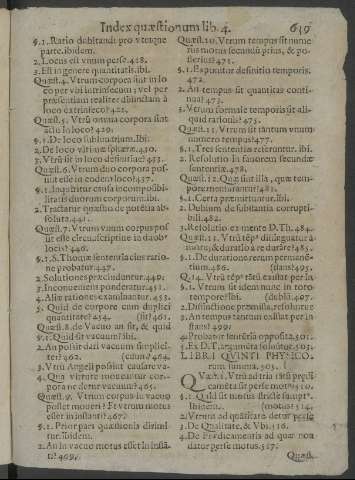 Index quæstionum lib. 4. 619
§.1. Ratio dubitandi pro vtraque
parte. ibidem.
2. Locus est vnum per se. 428.
3. Est in genere quantitatis. ibi.
Quæst. 4. Vtrum corpora sint in lo
co per vbi intrinsecum; vel per
præsentiam realiter distinctam à
loco extrinseco? 422.
Quæst. 5. Vtrū omnia corpora sint
actu in loco? 429.
§.1. De loco sublunarium. Ibi.
2. De loco vltimæ sphæræ. 430.
3. Vtrū sit in loco definitiuè? 433.
Quæst. 6. Vtrum duo corpora pos-
sint esse in eodem loco? 437.
§.1. Inquiritur causa incompossibi-
litatis duorum corporum. ibi.
2. Tractatur quæstio de potētia ab-
soluta. 441.
Quæst. 7. Vtrum vnum corpus pos
sit esse circumscriptiue in duob9
locis? 446.
§.1. S. Thomæ sententia eius ratio-
ne probatur. 447.
2. Solutiones præcluduntur. 449.
3. Inconuenientia ponderatur. 451.
4. Aliæ rationes examinantur. 453.
5. Quid de corpore cum duplici
quantitate? 454. (sit? 461.
Quæst. 8. de Vacuo an sit, & quid
§.1. Quid sit vacuum? ibi.
2. An possit dari vacuum simplici-
ter? 462. (cuum? 464.
3. Vtrū Angeli possint causare va-
4. Qua virtute moueantur cor-
pora ne detur vacuum? 465.
Quæst. 9. Vtrum corpus in vacuo
posset moueri? Et vtrum motus
esset in instanti? 467.
§.1. Prior pars quæstionis dirimi-
tur. ibidem.
2. An in vacuo motus esset in instā
ti? 469.
Quæst. 10. Vtrum tempus sit nume
rus motus secundū prius, & po
sterius? 471.
§.1. Expenitur definitio temporis.
472.
2. An tempus sit quantitas conti-
nua? 473.
3. Vtrum formale temporis sit ali-
quid rationis? 475.
Quæst. 11. Vtrum sit tantum vnum
numero tempus? 477.
§.1. Tres sententiæ referuntur. ibi.
2. Resolutio in fauorem secundæ
sententiæ. 478.
Quæst. 12. Quæ sint illa, quæ tem-
pore mensurantur? 481.
§.1. Certa præmittuntur. Ibi.
2. Dubium de substantia corrupti-
bili. 482.
3. Resolutio ex mente D. Th. 484.
Quæst. 13. Vtrū tēp9 distinguatur à
motu, & duratio à re durāte? 485.
§.1. De duratione rerum permanē-
tium. 486. (stans? 495.
Q. 14. Vtrū tēp9 totū existat per in-
§.1. Vtrum sit idem nunc in toto
tempore? Ibi. (dubij. 497.
2. Distinctione præmissa, resolutio e
3. An tempus tantum existat per in
stans? 499.
4. Probatur sententia opposita. 501.
5. Ex D. T. argumēta soluuntur. 503.
LIBRI QVINTI PHYSICO-
rum summa. 505.
Quæst. 1. Vtrū ad tria tātū prædi
camēta sit per se motus? 510.
§.1. Quid sit motus strictè sumptus.
Ibidem. (motus? 514.
2. Vtrum ad quātitatē detur per se
3. De Qualitate, & Vbi. 516.
4. De Prædicamentis ad quæ non
datur per se motus. 517.
Quæst.